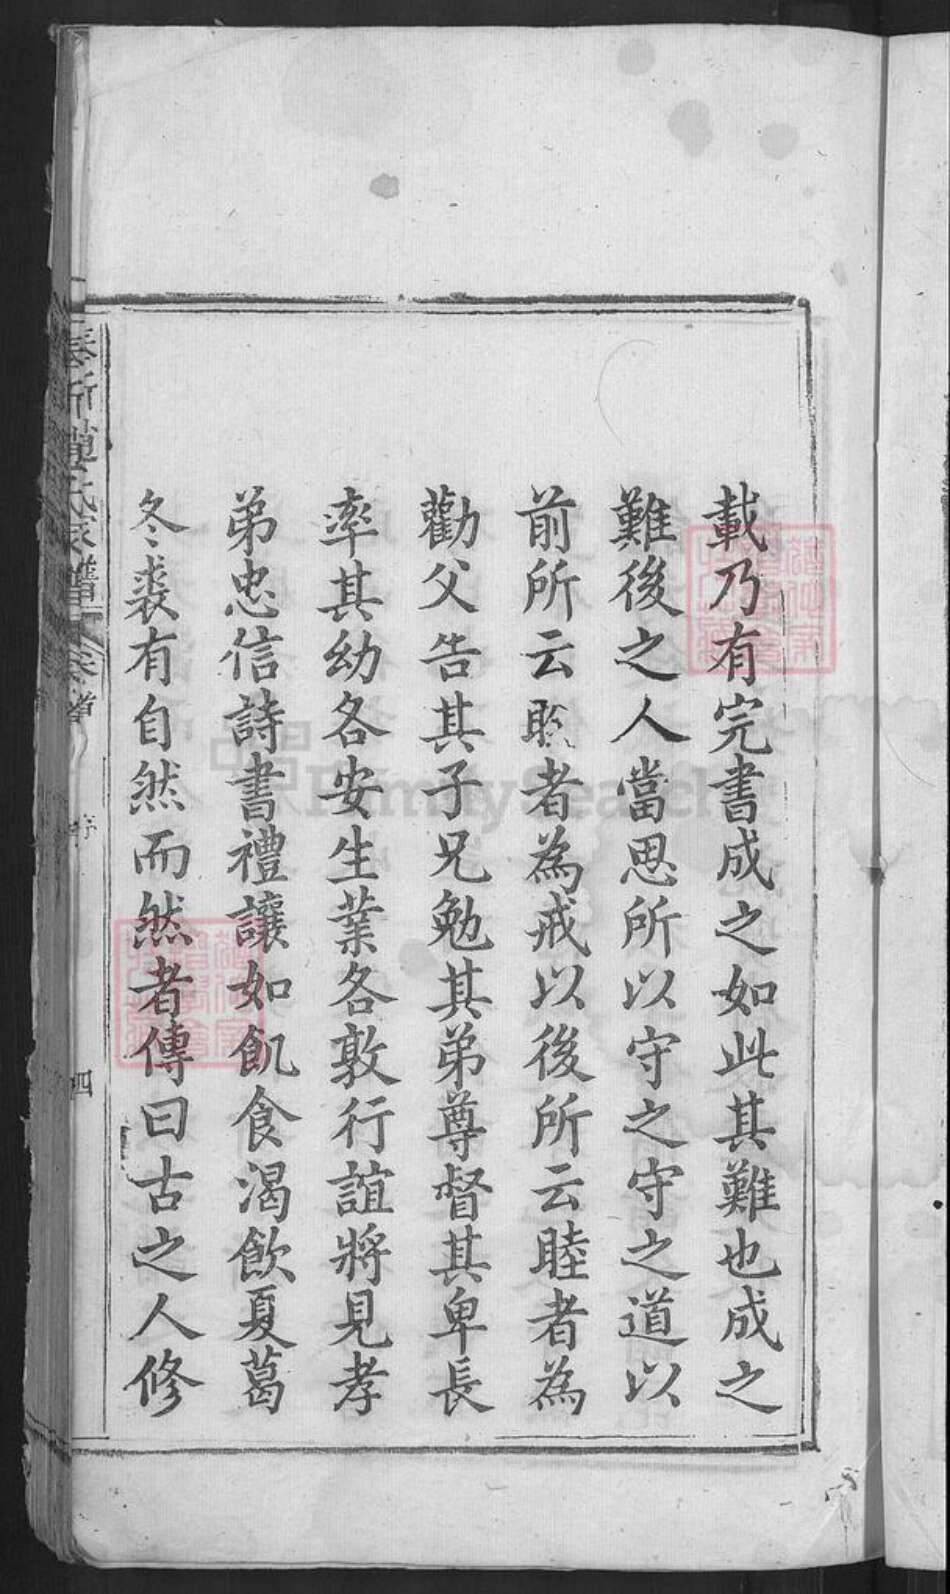 載乃有完書成之如此其難也成之
難後之人當思所以守之守之道以
前所云者為戒以後所云睦者為
勸父告其子兄勉其弟尊督其卑長
率其幼各安生業各敦行誼將見孝
弟忠信詩書禮讓如飢食渴飲夏葛
冬裘有自然而然者傳曰古之人修
趙氏家譜
卷首
序
四
FamilySearch